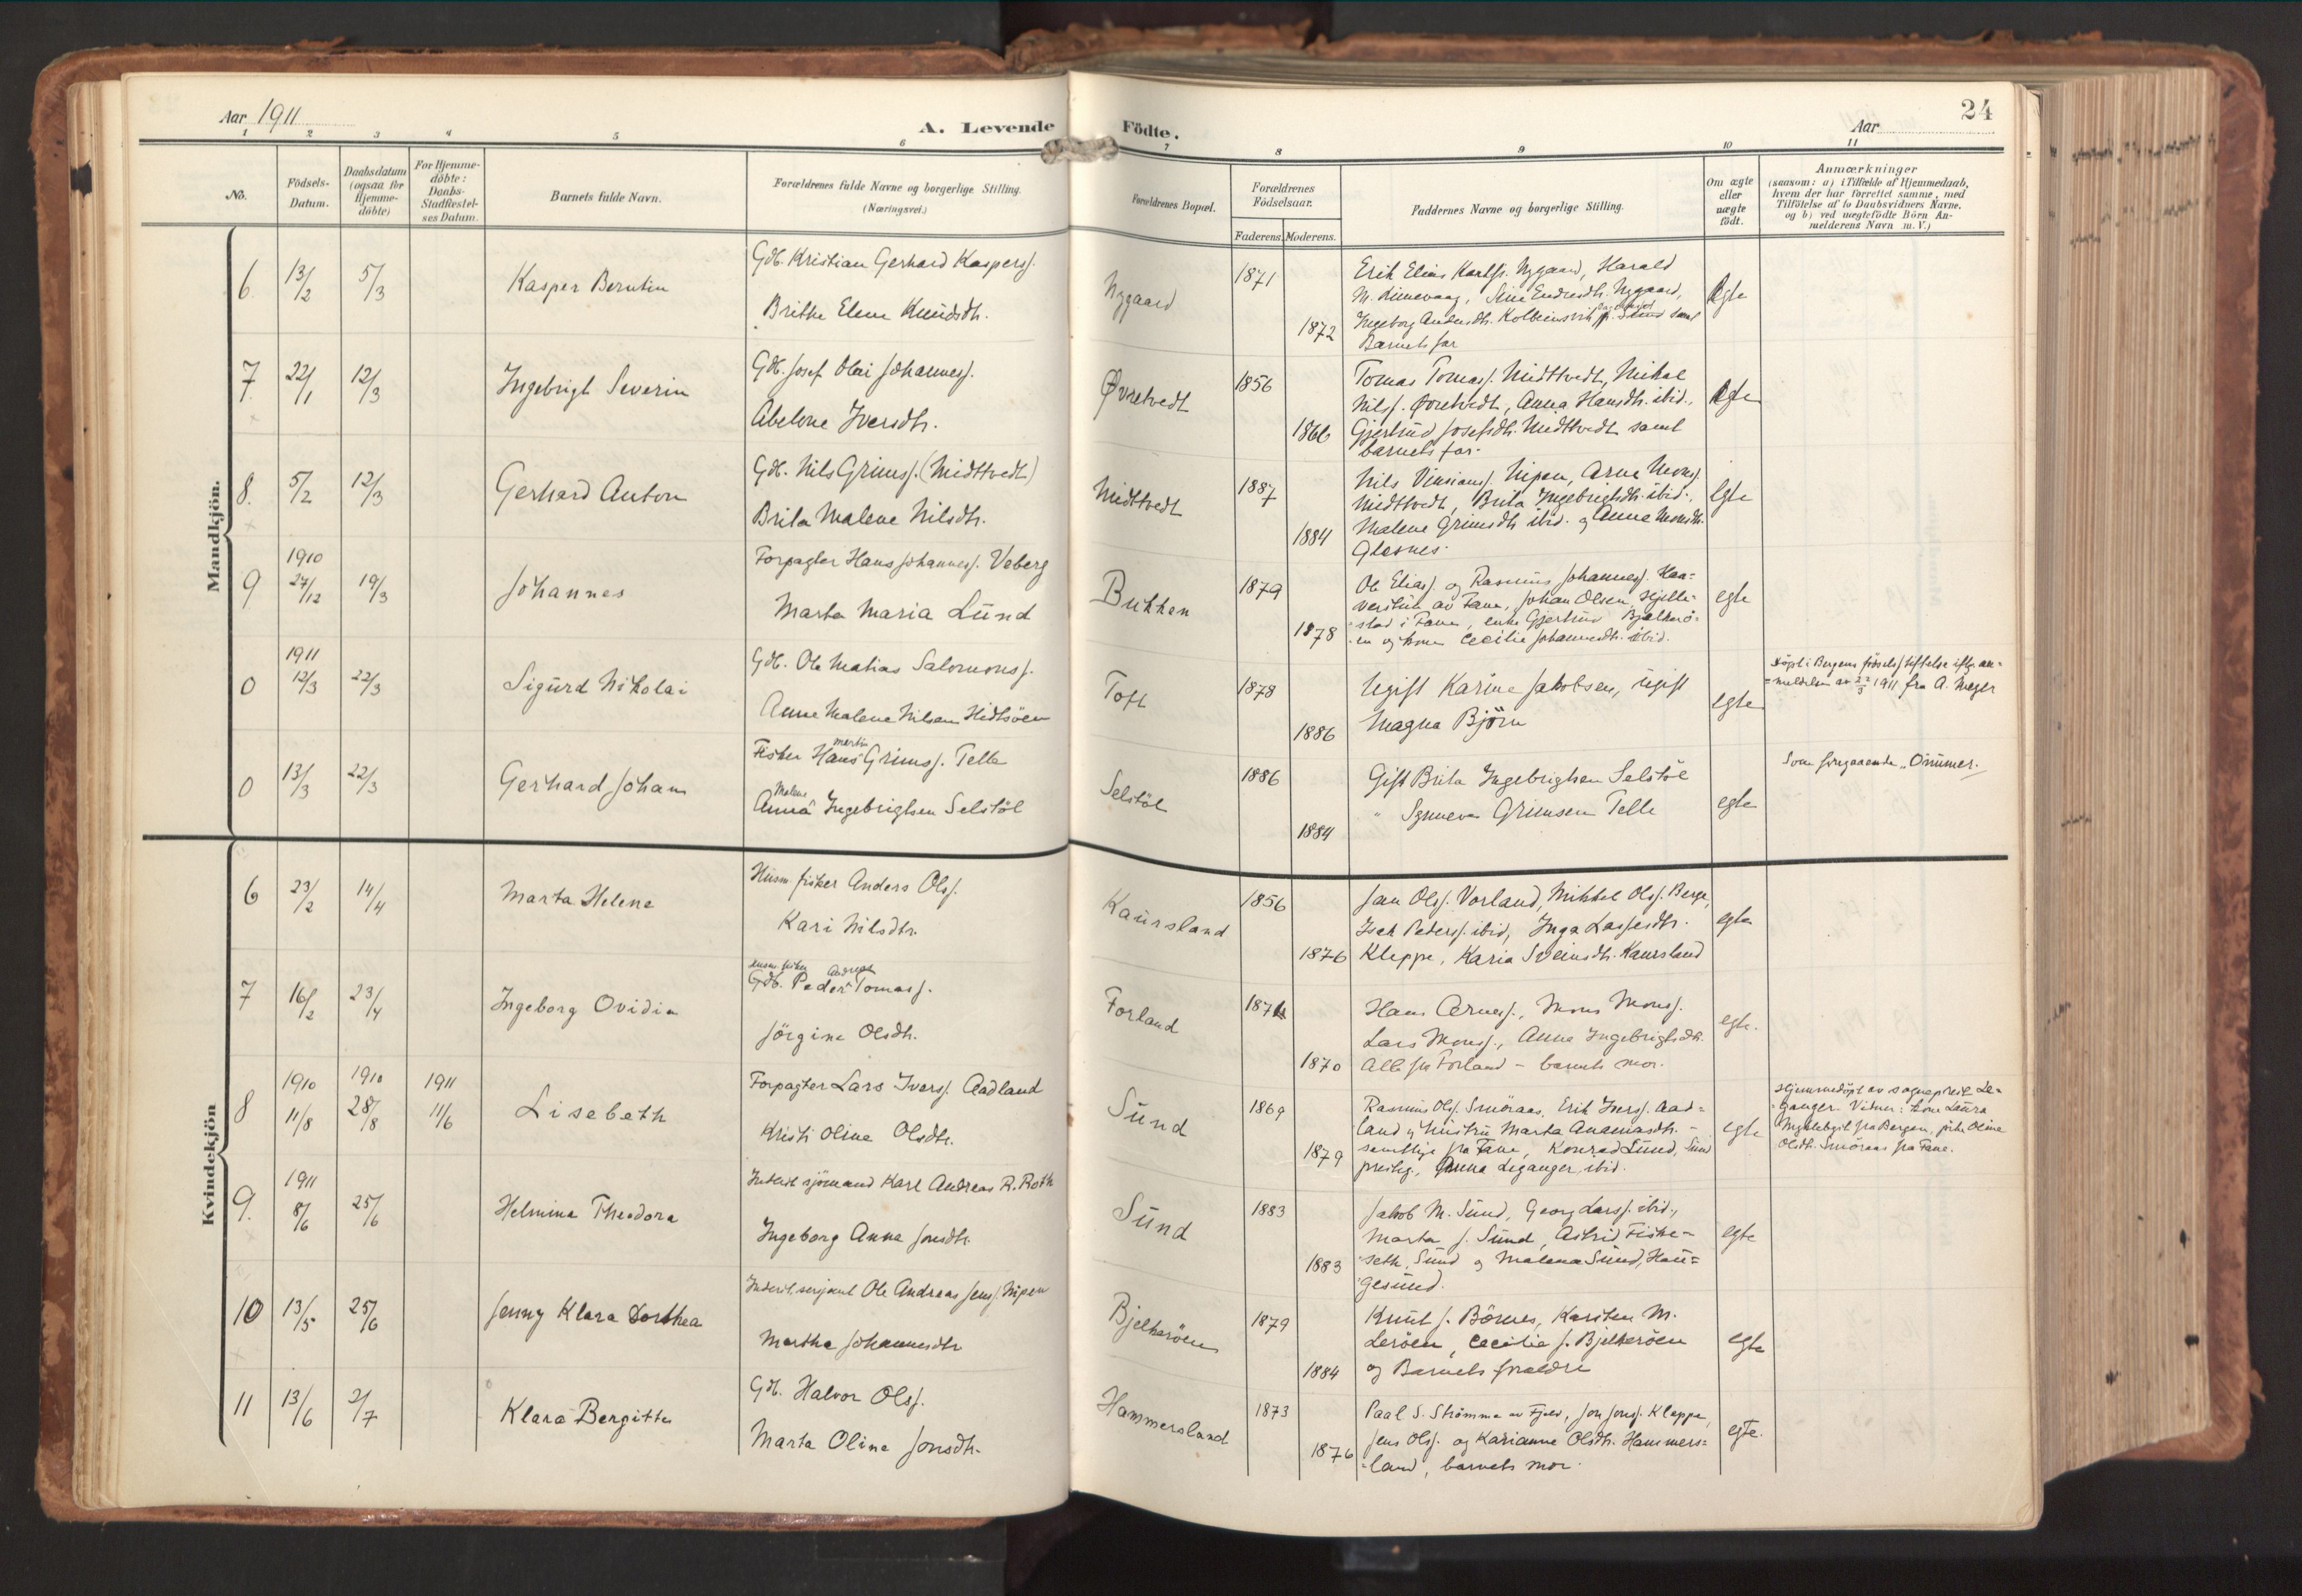 24
Aar 1911
A. Levende Födte.
Aar
1 2 3 4 5 6 7 8 9 10 11
No.
Födsels-
Datum.
Daabsdatum
(ogsaa for
Hjemme-
döbte)
For Hjemme-
döbte:
Daabs-
Stadfæstel-
ses Datum.
Barnets fulde Navn.
Forældrenes fulde Navne og borgerlige Stilling.
(Næringsvei.)
Forældrenes Bopæl.
Forældrenes
Födselsaar.
Faderens. Moderens.
Faddernes Navne og borgerlige Stilling.
Om ægte
eller
uægte
födt.
Anmærkninger
(saasom: a) i Tilfælde af Hjemmedaab,
hvem der har forrettet samme, med
Tilföielse af to Daabsvidners Navne.
og b) ved uægtefödte Börn An-
melderens Navn m. V.)
Mandkjön.
6. 13/2 5/3
Kasper Berntin
Gdb. Kristian Gerhard Kaspersʃ.
Brithe Elene Knudsdtr.
Nygaard
1871
1872
Erik Elias Karlsʃ. Nygaard, Harald
M. Limevaag, Sine Endresdtr. Nygaard,
Ingeborg Andersdtr. Kolbeinsvik Sund samt
Barnets far
Egte
7. 22/1 12/3
Ingebrigt Severin
Gdb. Josef Olai Johannesʃ.
Abelone Iversdtr.
Øvretvedt
1856
1866
Tomas Tomasʃ. Midttvedt, Mikal
Nilsʃ. Øvretvedt, Anna Hansdtr. ibid.,
Gjertrud Josefsdtr. Midttvedt samt
barnets far.
Egte
8. 5/2 12/3
Gerhard Anton
Gdb. Nils Grimsʃ. (Midttvedt)
Brita Malene Nilsdtr.
Midttvedt
1887
1884
Nils Vinsiansʃ. Nipen, Arne Monsʃ.
Midttvedt, Brita Ingebrigtsdtr. ibid.,
Malene Grimsdtr ibid. og Anna Monsdtr.
Glesnes.
Egte
9 1910
27/12 19/3
Johannes
Forpagter Hans Johannesʃ. Veberg
Marta Maria Lund
Bukken
1879
1878
Ole Eliasʃ. og Rasmus Johannesʃ. Kaa-
verstuen av Fane, Johan Olsen, Hjelle-
stad i Fane, enke Gjertrud Bjelkerö-
en og kone Cecilie Johannesdtr. ibid.
egte
0 1911
12/3 22/3
Sigurd Nikolai
Gdb. Ole Matias Salomonsʃ.
Anne Malene Nilsen Hidtsöen
Toft
1878
1886
Ugift Karine Jakobsen, ugift
Magna Björn
egte
Döpt i Bergens födselsstiftelse ifg. an-
meldelse av 22/3 1911 fra A. Meyer
0 13/3 22/3
Gerhard Johan
Fisker Hans Martin Grimsʃ. Telle
Anna Malene Ingebrigtsen Selstöl
Selstöl
1886
1884
Gift Brita Ingebrigtsen Selstöl
" Synneva Grimsen Telle
egte
Som foregaaende Onumer.
Kvindekjön
6 23/2 14/4
Marta Helene
Husm. fisker Anders Olsʃ.
Kari Nilsdtr.
Kaursland
1856
1876
Jan Olsʃ. Vorland, Mikkel Olsʃ. Berge,
Isak Pedersʃ. ibid, Inga Lassesdtr.
Kleppe, Karia Sveinsdtr. Kaursland
egte
7 16/2 23/4
Ingeborg Ovidia
Gdb. Peder Andreas Tomasʃ.
Jörgine Olsdtr.
Forland
1874
1870
Hans Arnesʃ., Mons Monsʃ.
Lars Monsʃ., Anna Ingebrigtsdtr.
Alle fra Forland - barnets mor.
egte.
8 1910 1910 1911
11/8 28/8 11/6
Lisebeth
Forpagter Lars Iversʃ. Aadland
Kristi Oline Olsdtr.
Sund
1869
1879
Rasmus Olsʃ. Smöraas, Erik Iversʃ. Aad-
land og hustru Marta Anamasdtr. -
samtlige fra Fane, Konrad Lund, Sund
presteg., Anna Leganger, ibid.
egte
Hjemmedöpt av sogneprest Le-
ganger. Vitner: kone Laura
Ingelebgil fra Bergen, pike Oline
Olsdtr. Smöraas fra Fane.
9. 1911
8/6 25/6
Helmina Theodora
Inderst sjömand Karl Andreas R. Roth
Ingeborg Anna Jonsdtr.
Sund
1883
1883
Jakob M. Sund, Georg Larsʃ. ibid.,
Marta J. Sund, Astrid Fiske-
seth, Sund og Malena Sund, Hau-
gesund.
egte
10 13/5 25/6
Jenny Klara Dorthea
Inderst serjant Ole Andreas Jensʃ. Nipen
Martha Johannesdtr
Bjelkeröen
1879
1884
Knut J. Börnes, Karsten M.
Leröen, Cecilie J. Bjelkeröen
og Barnets forældre
egte
11 13/6 2/7
Klara Bergitte
Gdb. Halvor Olsʃ.
Marta Oline Jonsdtr.
Hammersland
1873
1876
Paal S. Strömme av Fjeld, Jon Jonsʃ. Kleppe,
Jens Olsʃ. og Karianne Olsdtr. Hammers-
land, barnets mor.
egte.